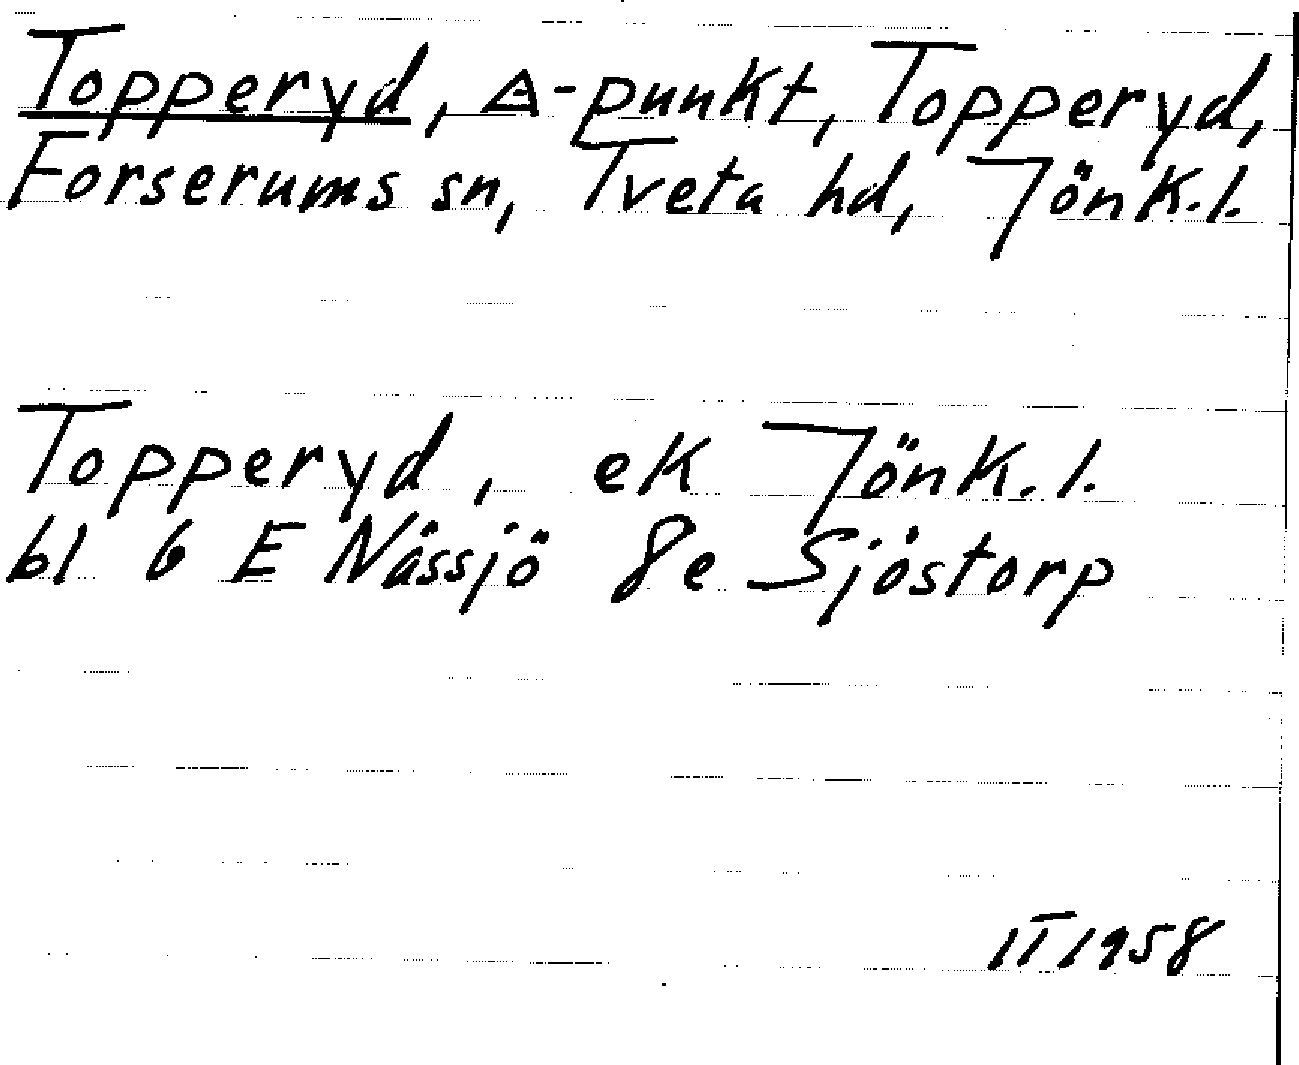 Topperyd, △-punkt, Topperyd,
Forserums sn, Tveta hd, Jönk.l.
Topperyd, ek Jönk.l.
bl 6 E Nässjö 8e Sjöstorp
1T1958